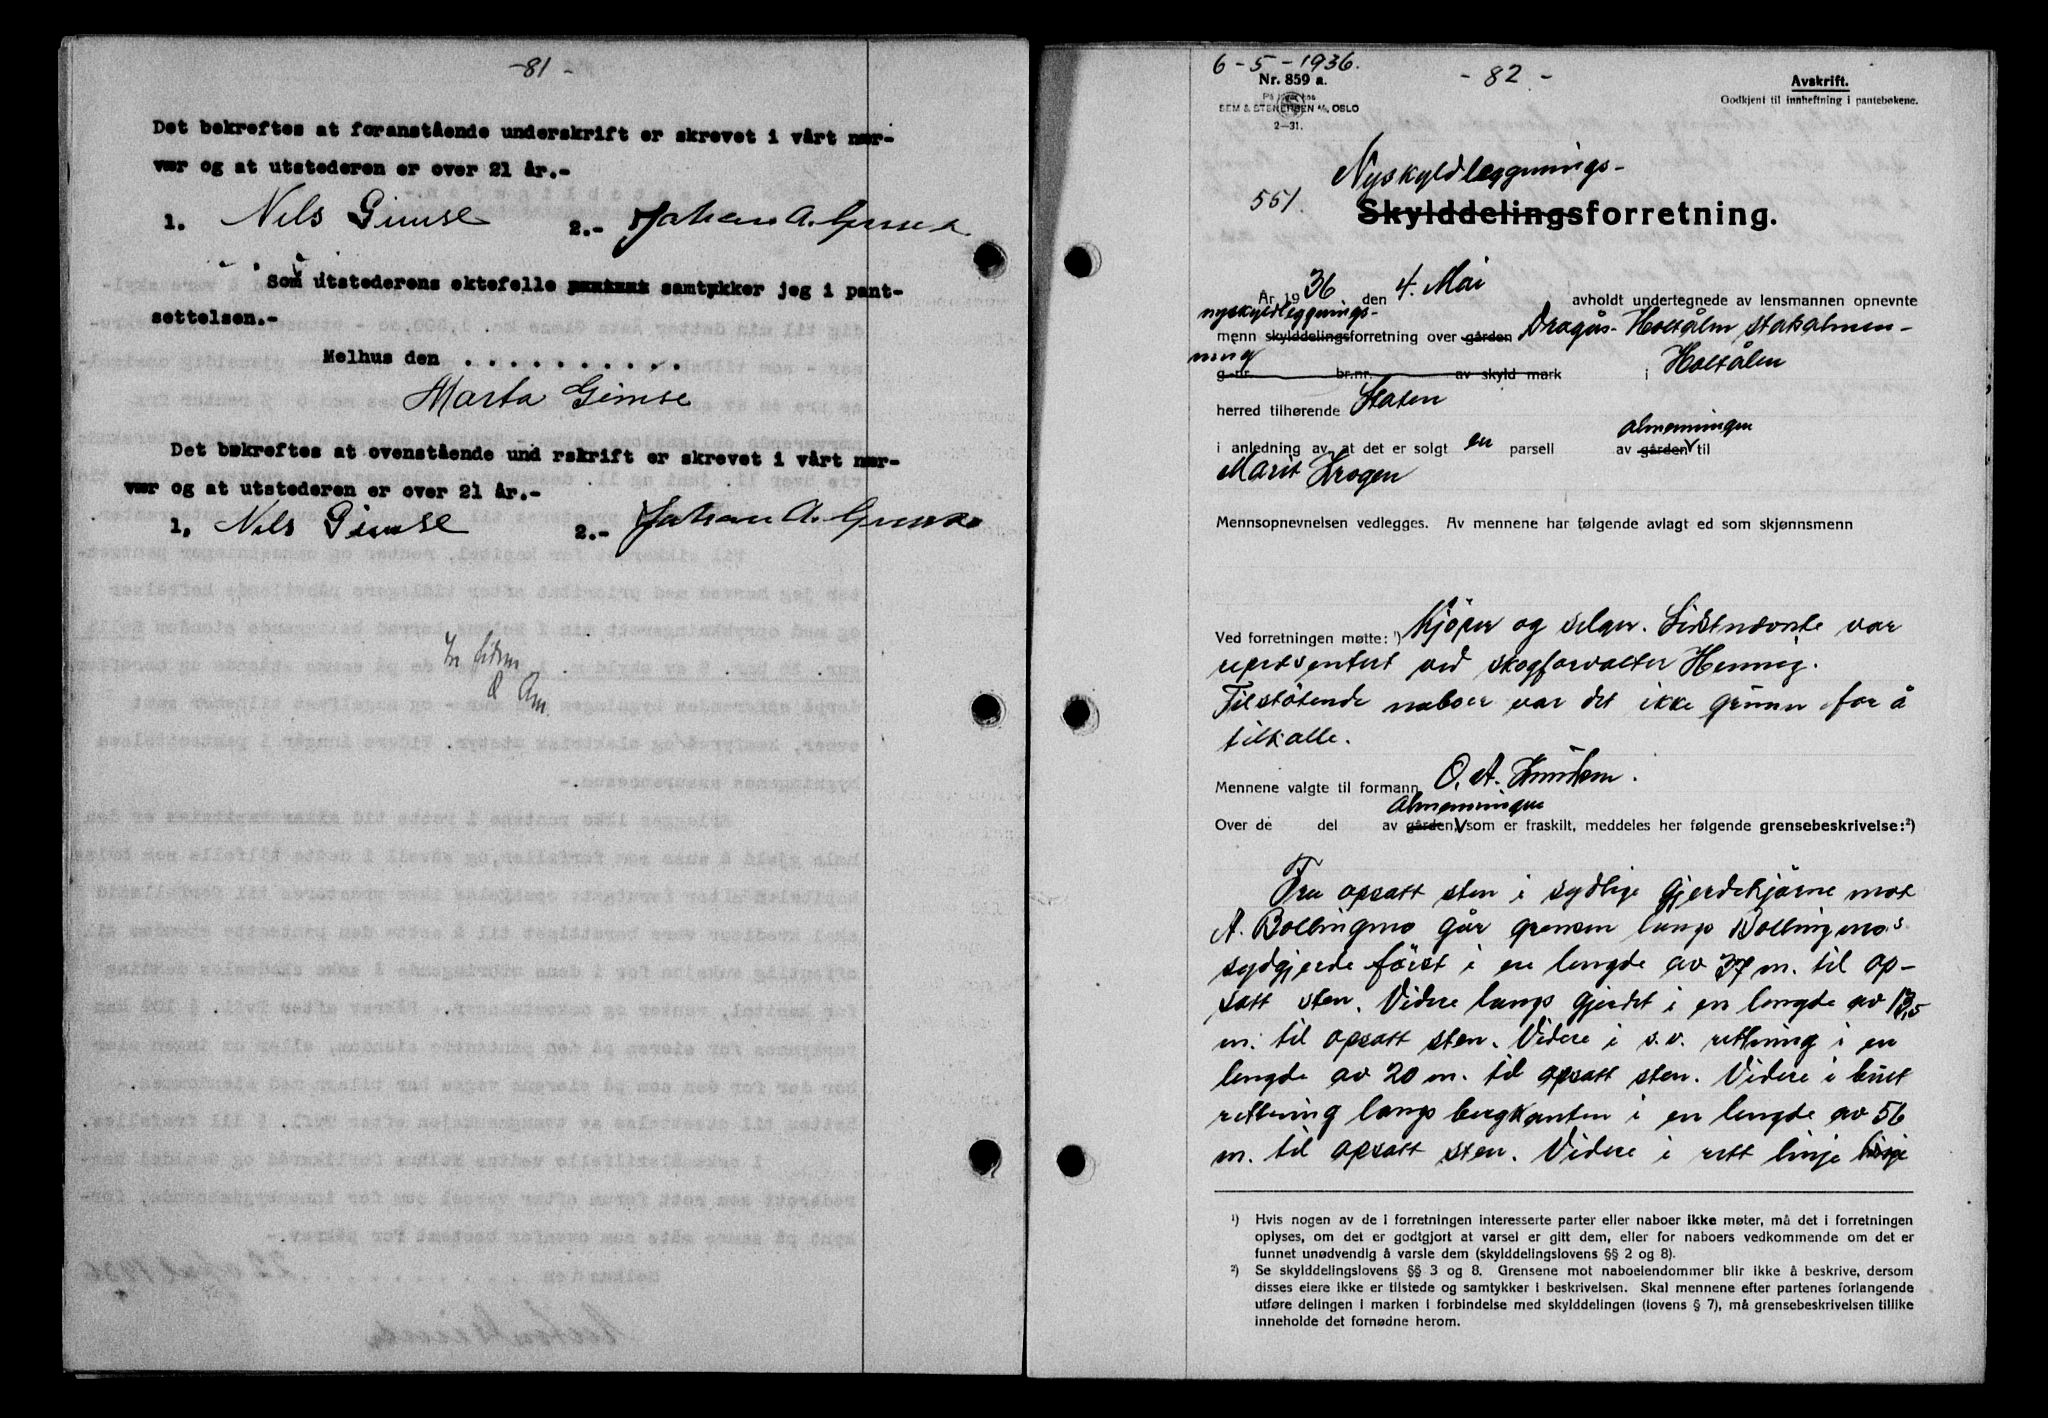 - 81 -
Det bekreftes at foranstående underskrift er skrevet i vårt nær-
vær og at utstederen er over 21 år.-
1. Nils Gimse 2.- Johan A. Gimse
Som utstederens ektefelle samtykker jeg i pant-
settelsen.-
Melhus den . . . . . . . . . .
Marta Gimse
Det bekreftes at ovenstående und rskrift er skrevet i vårt nær-
vær og at utstederen er over 21 år.-
1, Nils Gimse 2.- Johan A. Gimse
6 - 5 - 1936.
- 82 -
Nr. 859 a.
På lager hos
SEM & STENERSEN A/S, OSLO
2-31.
Avskrift.
Godkjent til innheftning i pantebøkene.
Nyskyldleggnings-
551.
Skylddelingsforretning.
År 1936 den 4. Mai avholdt undertegnede av lensmannen opnevnte
nyskyldleggnings-
menn skylddelingsforretning over gården Dragås- Holtålen statsalmen-
ning
g.-nr. br.nr. av skyld mark i Holtålen
herred tilhørende Staten
i anledning av at det er solgt en parsell av gården almenningen til
Marit Krogen
Mennsopnevnelsen vedlegges. Av mennene har følgende avlagt ed som skjønnsmenn
Ved forretningen møtte: ¹) Kjöper og selger. Sistnevnte var
representert ved skogforvalter Hennig.
Tilstötende naboer var det ikke grunn for å
tilkalle.
Mennene valgte til formann O. A. Knudsen.
almenningen
Over de del av gården som er fraskilt, meddeles her følgende grensebeskrivelse: ²)
Fra opsatt sten i sydlige gjerdehjörne mot
A. Bollingmo går grensen langs Bollingmos
sydgjerde först i en lengde av 37 m. til op-
satt sten. Videre langs gjerdet i en lengde av 13,5
m. til opsatt sten. Videre i s.v. rettning i en
lengde av 20 m. til opsatt sten. Videre i buet
rettning langs bergkanten i en lengde av 56
m. til opsatt sten. Videre i rett linje
¹) Hvis nogen av de i forretningen interesserte parter eller naboer ikke møter, må det i forretningen
oplyses, om det er godtgjort at varsel er gitt dem, eller for naboers vedkommende om det er
funnet unødvendig å varsle dem (skylddelingslovens §§ 2 og 8).
²) Se skylddelingslovens §§ 3 og 8. Grensene mot naboeiendommer blir ikke å beskrive, dersom
disses eiere ikke er tilstede og samtykker i beskrivelsen. Skal mennene efter partenes forlangende
utføre delingen i marken i forbindelse med skylddelingen (lovens § 7), må grensebeskrivelsen tillike
inneholde det fornødne herom.